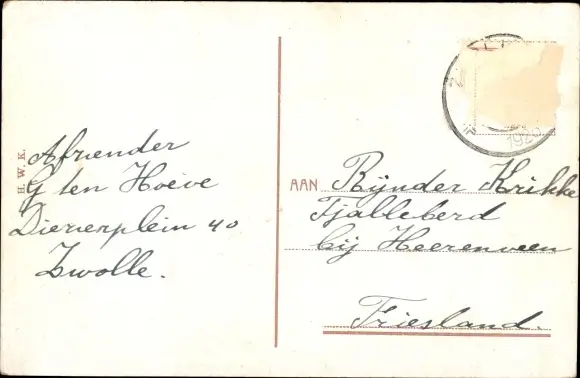 H. W. K.
Afzender
G ten Hoeve
Diezerplein 40
Zwolle.
AAN Rijnder Krikke
Tjalleberd
bij Heerenveen
Friesland.
192